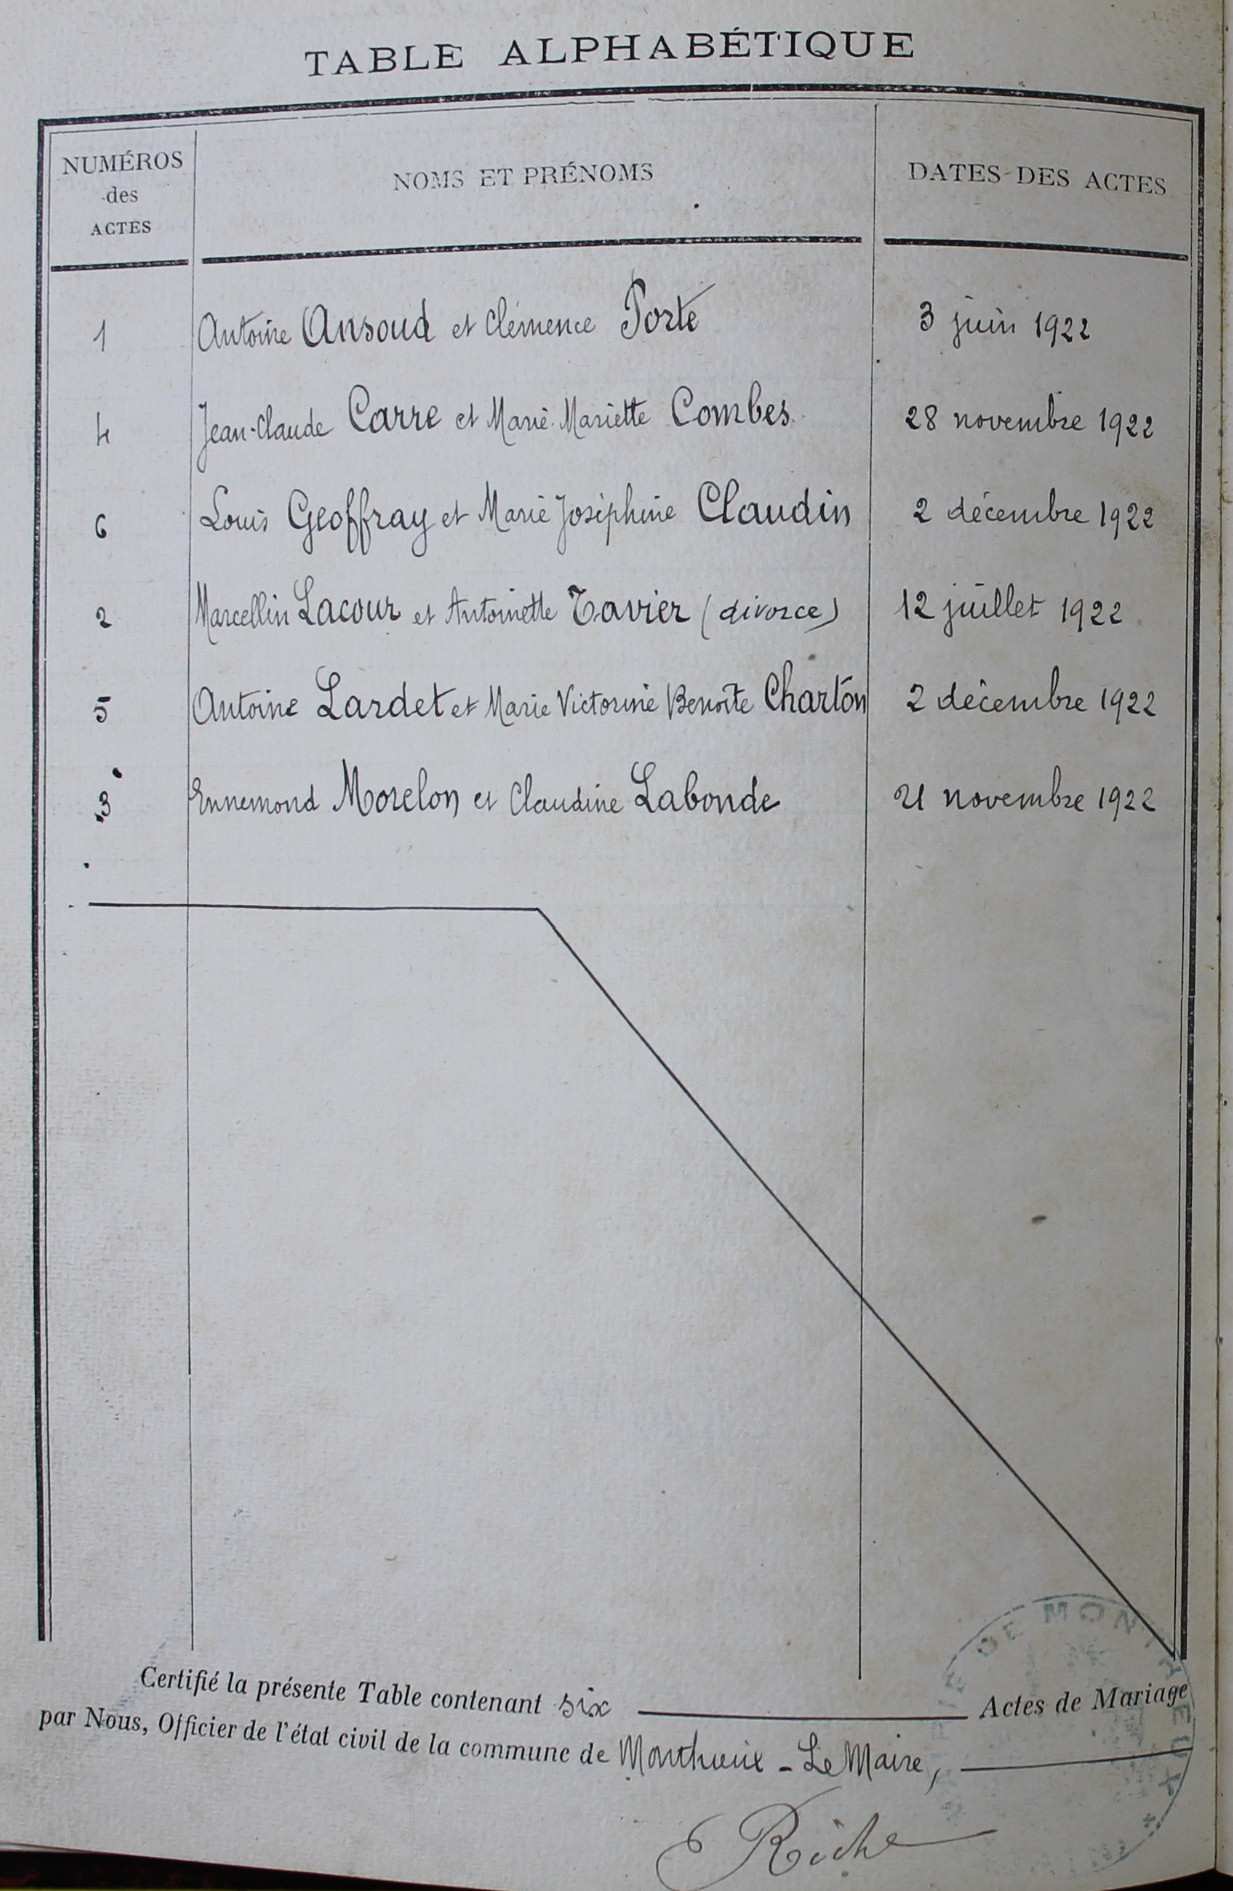 TABLE ALPHABÉTIQUE
NUMÉROS des ACTES
NOMS ET PRÉNOMS
DATES DES ACTES
1 Antoine Ansoud et Clémence Porte 3 juin 1922
4 Jean-Claude Carre et Marie Mariette Combes 28 novembre 1922
6 Louis Geoffray et Marie Joséphine Claudin 2 décembre 1922
2 Marcellin Lacour et Antoinette Tavier (divorce) 12 juillet 1922
5 Antoine Lardet et Marie Victorine Benoîte Charton 2 décembre 1922
3 Ennemond Morelon et Claudine Labonde 21 novembre 1922
Certifié la présente Table contenant six Actes de Mariage
par Nous, Officier de l'état civil de la commune de - Le Maire,
Riche